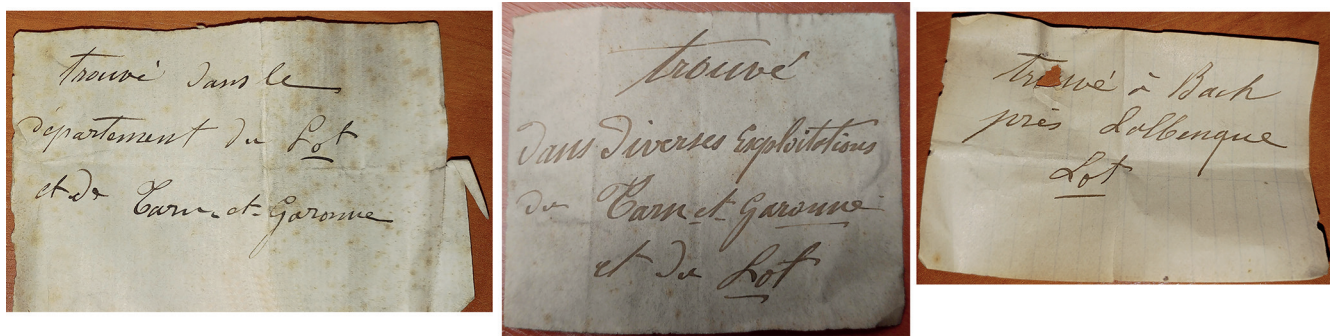 trouvé dans le
département du Lot
et de Tarn-et-Garonne
trouvé
dans diverses Exploitations
du Tarn et Garonne
et du Lot
trouvé à Bach
près Lalbenque
Lot